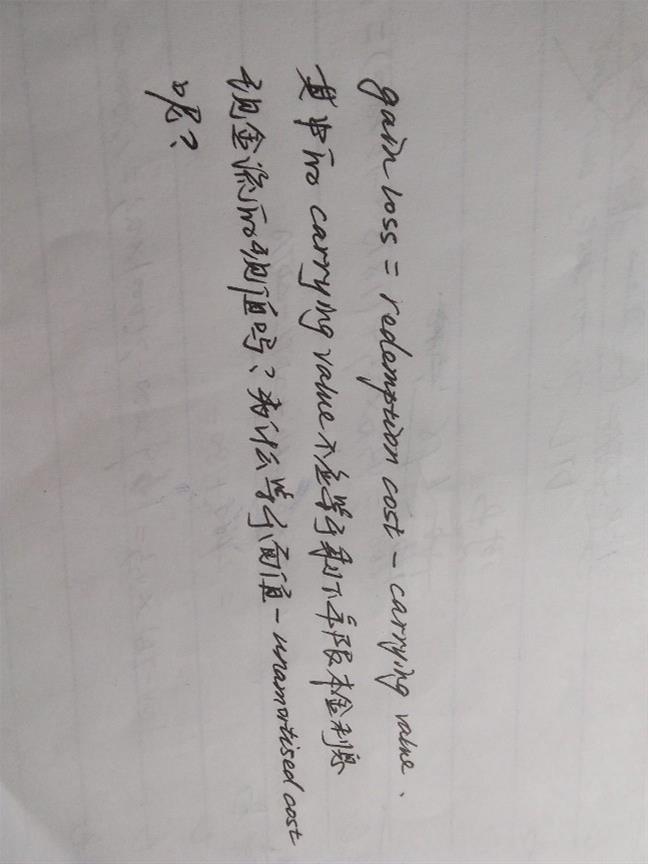 gain loss = redemption cost - carrying value.
其中的 carrying value 不应等于剩下年限本金利息
现金流的现值吗？为什么等于面值 - unamortised cost
呢？